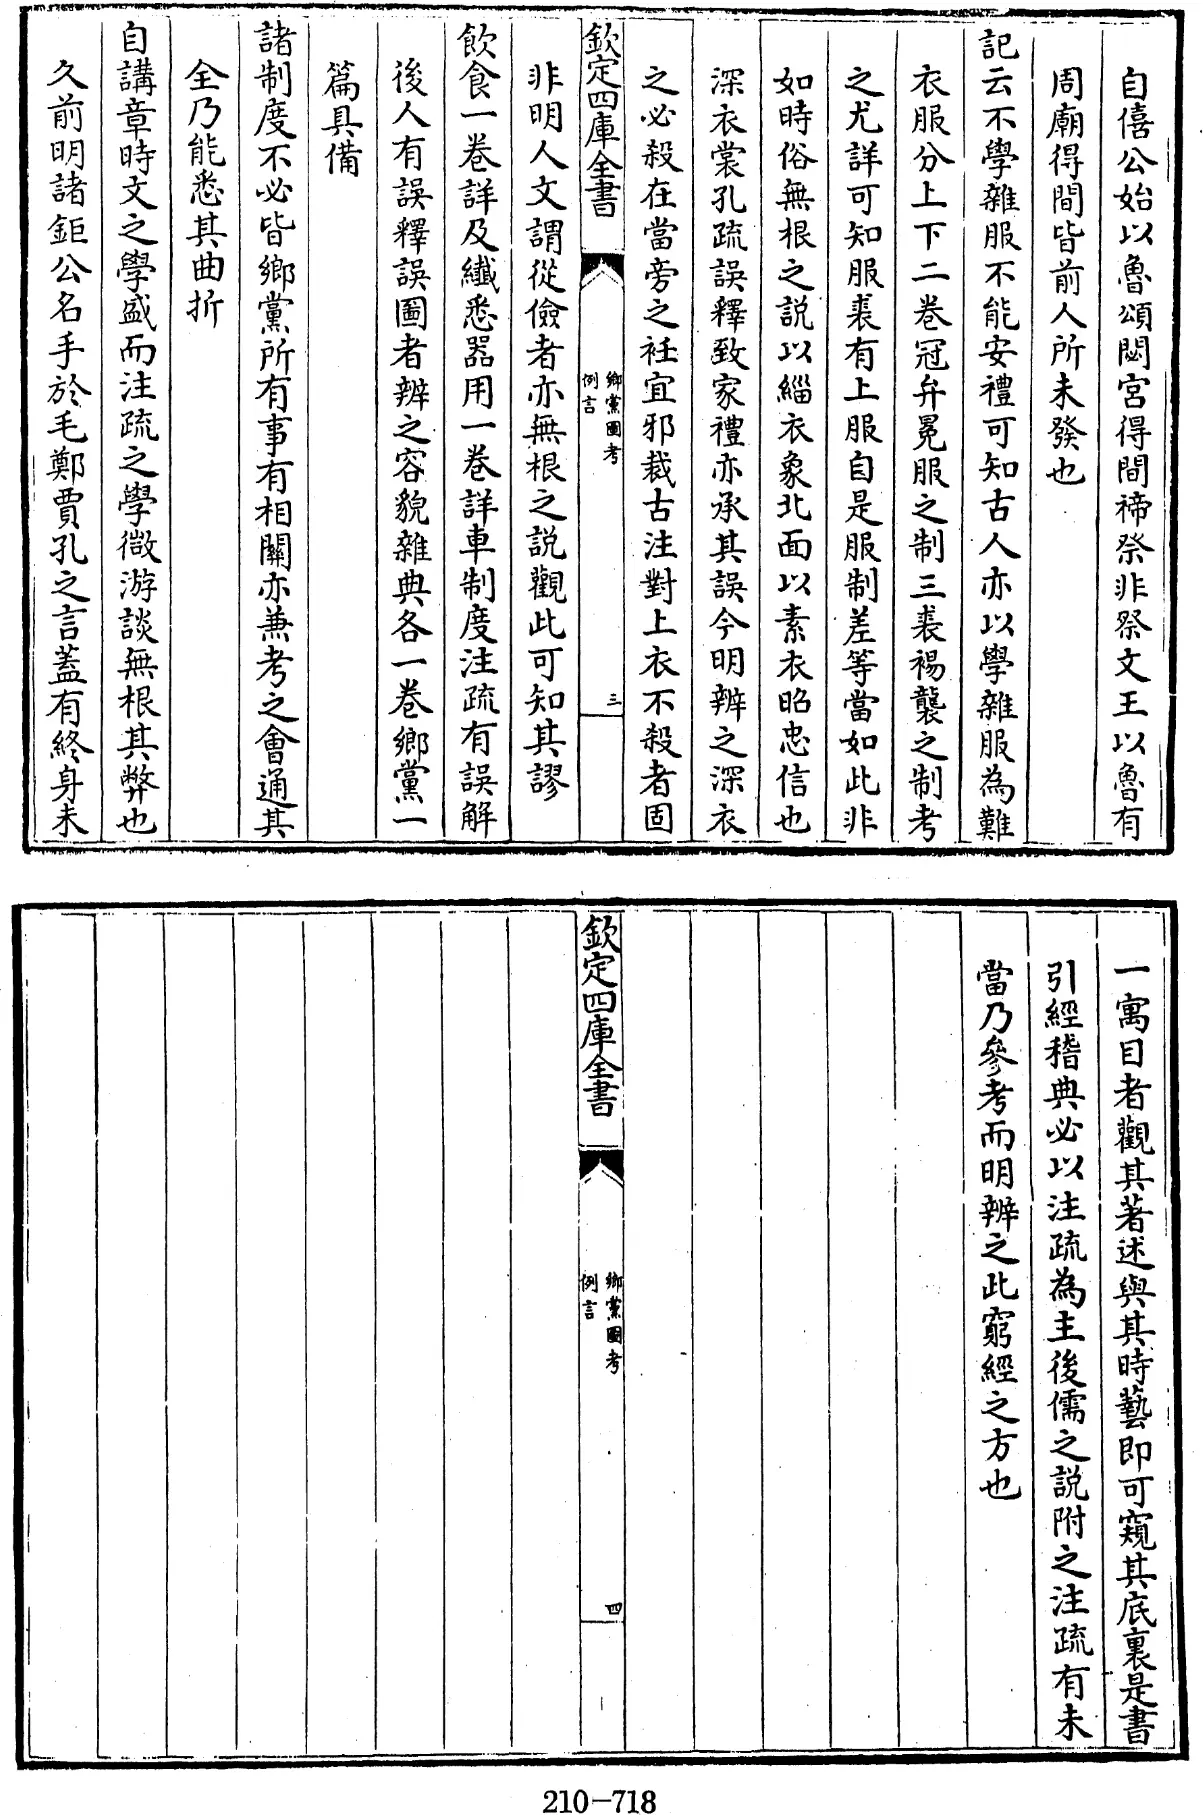 自僖公始以魯頌閟宮得間禘祭非祭文王以魯有
周廟得間皆前人所未發也
記云不學雜服不能安禮可知古人亦以學雜服為難
衣服分上下二巻冠弁冕服之制三裘裼襲之制考
之尤詳可知服裘有上服自是服制差等當如此非
如時俗無根之説以緇衣象北面以素衣昭忠信也
深衣裳孔疏誤釋致家禮亦承其誤今明辨之深衣
之必殺在當旁之衽宜邪裁古注對上衣不殺者固
欽定四庫全書
鄉黨圖考
例言
三
非明人文謂從儉者亦無根之説觀此可知其謬
飲食一巻詳及纖悉器用一巻詳車制度注疏有誤解
後人有誤釋誤圖者辨之容貌雜典各一巻鄉黨一
篇具備
諸制度不必皆鄉黨所有事有相關亦兼考之會通其
全乃能悉其曲折
自講章時文之學盛而注疏之學微游談無根其弊也
久前明諸鉅公名手於毛鄭賈孔之言蓋有終身未
一寓目者觀其著述與其時藝即可窺其底裏是書
引經稽典必以注疏為主後儒之説附之注疏有未
當乃參考而明辨之此窮經之方也
欽定四庫全書
鄉黨圖考
例言
四
210-718